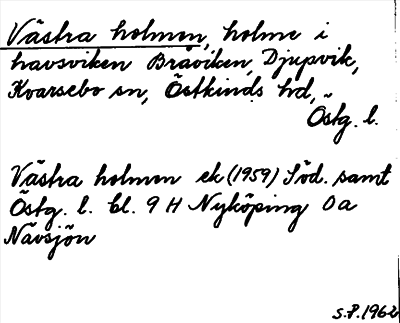 Västra holmen, holme i
havsviken Bråviken, Djupvik,
Kvarsebo sn, Östkinds hd,
Östg. l.
Västra holmen ek (1959) Söd. samt
Östg. l. bl. 9 H Nyköping 0a
Nävsjön
S.P. 1962